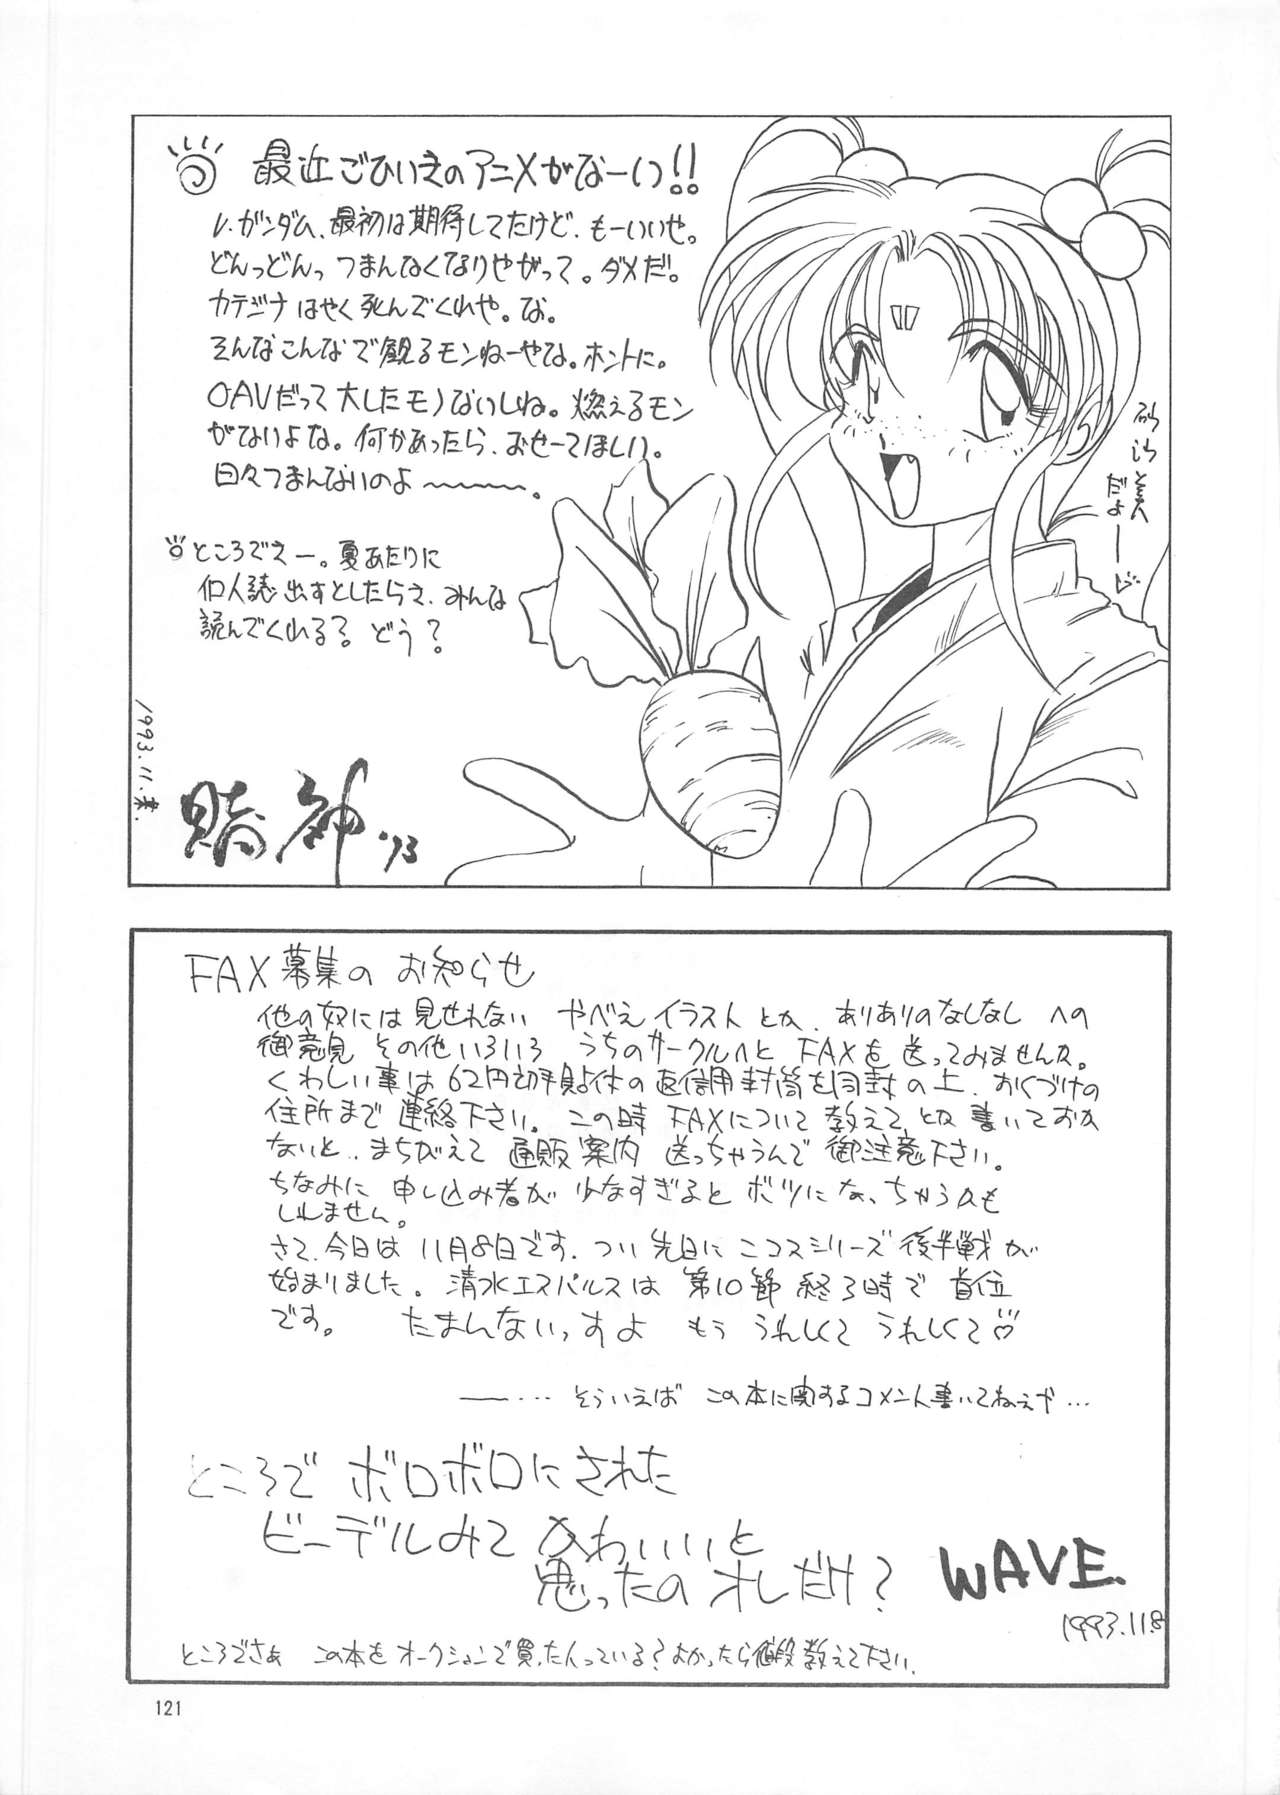 最近ごひいきのアニメがなーいっ!!
V.ガンダム、最初は期待してたけど、もーいいや。
どんっどんっ つまんなくなりやがって。ダメだ。
カテジナ はやく死んでくれや。な。
そんなこんなで観るモンねーやな。ホントに。
OAVだって大したモノないしね。燃えるモン
がないよな。何かあったら、おせーてほしい。
日々つまんないのよ〜〜〜。
砂沙美
だよーー
ところでえー。夏あたりに
個人誌 出すとしたらさ、みんな
読んでくれる? どう?
1993.11.末.
賭神 '93
FAX募集の お知らせ
他の奴には見せれない やべえイラストとか、ありありのなしなし への
御意見 その他いろいろ うちのサークルへと FAXを 送ってみませんか。
くわしい事は 62円切手貼付の返信用封筒を同封の上、おくづけの
住所まで 連絡下さい。この時 FAXについて 教えて とか 書いておか
ないと、まちがえて 通販案内 送っちゃうんで 御注意下さい。
ちなみに 申し込み者が 少なすぎると ボツになっちゃうかも
しれません。
さて、今日は 11月8日です。つい先日に ニコスシリーズ 後半戦が
始まりました。清水エスパルスは 第10節 終了時で 首位
です。 たまんないっすよ もう うれしくて うれしくて♡
――… そういえば この本に関するコメント書いてねえや…
ところで ボロボロにされた
ビーデルみて かわいいと
思ったの オレだけ?
WAVE.
1993.11.8
ところでさぁ この本を オークションで買った人っている? よかったら値段教えて下さい。
121